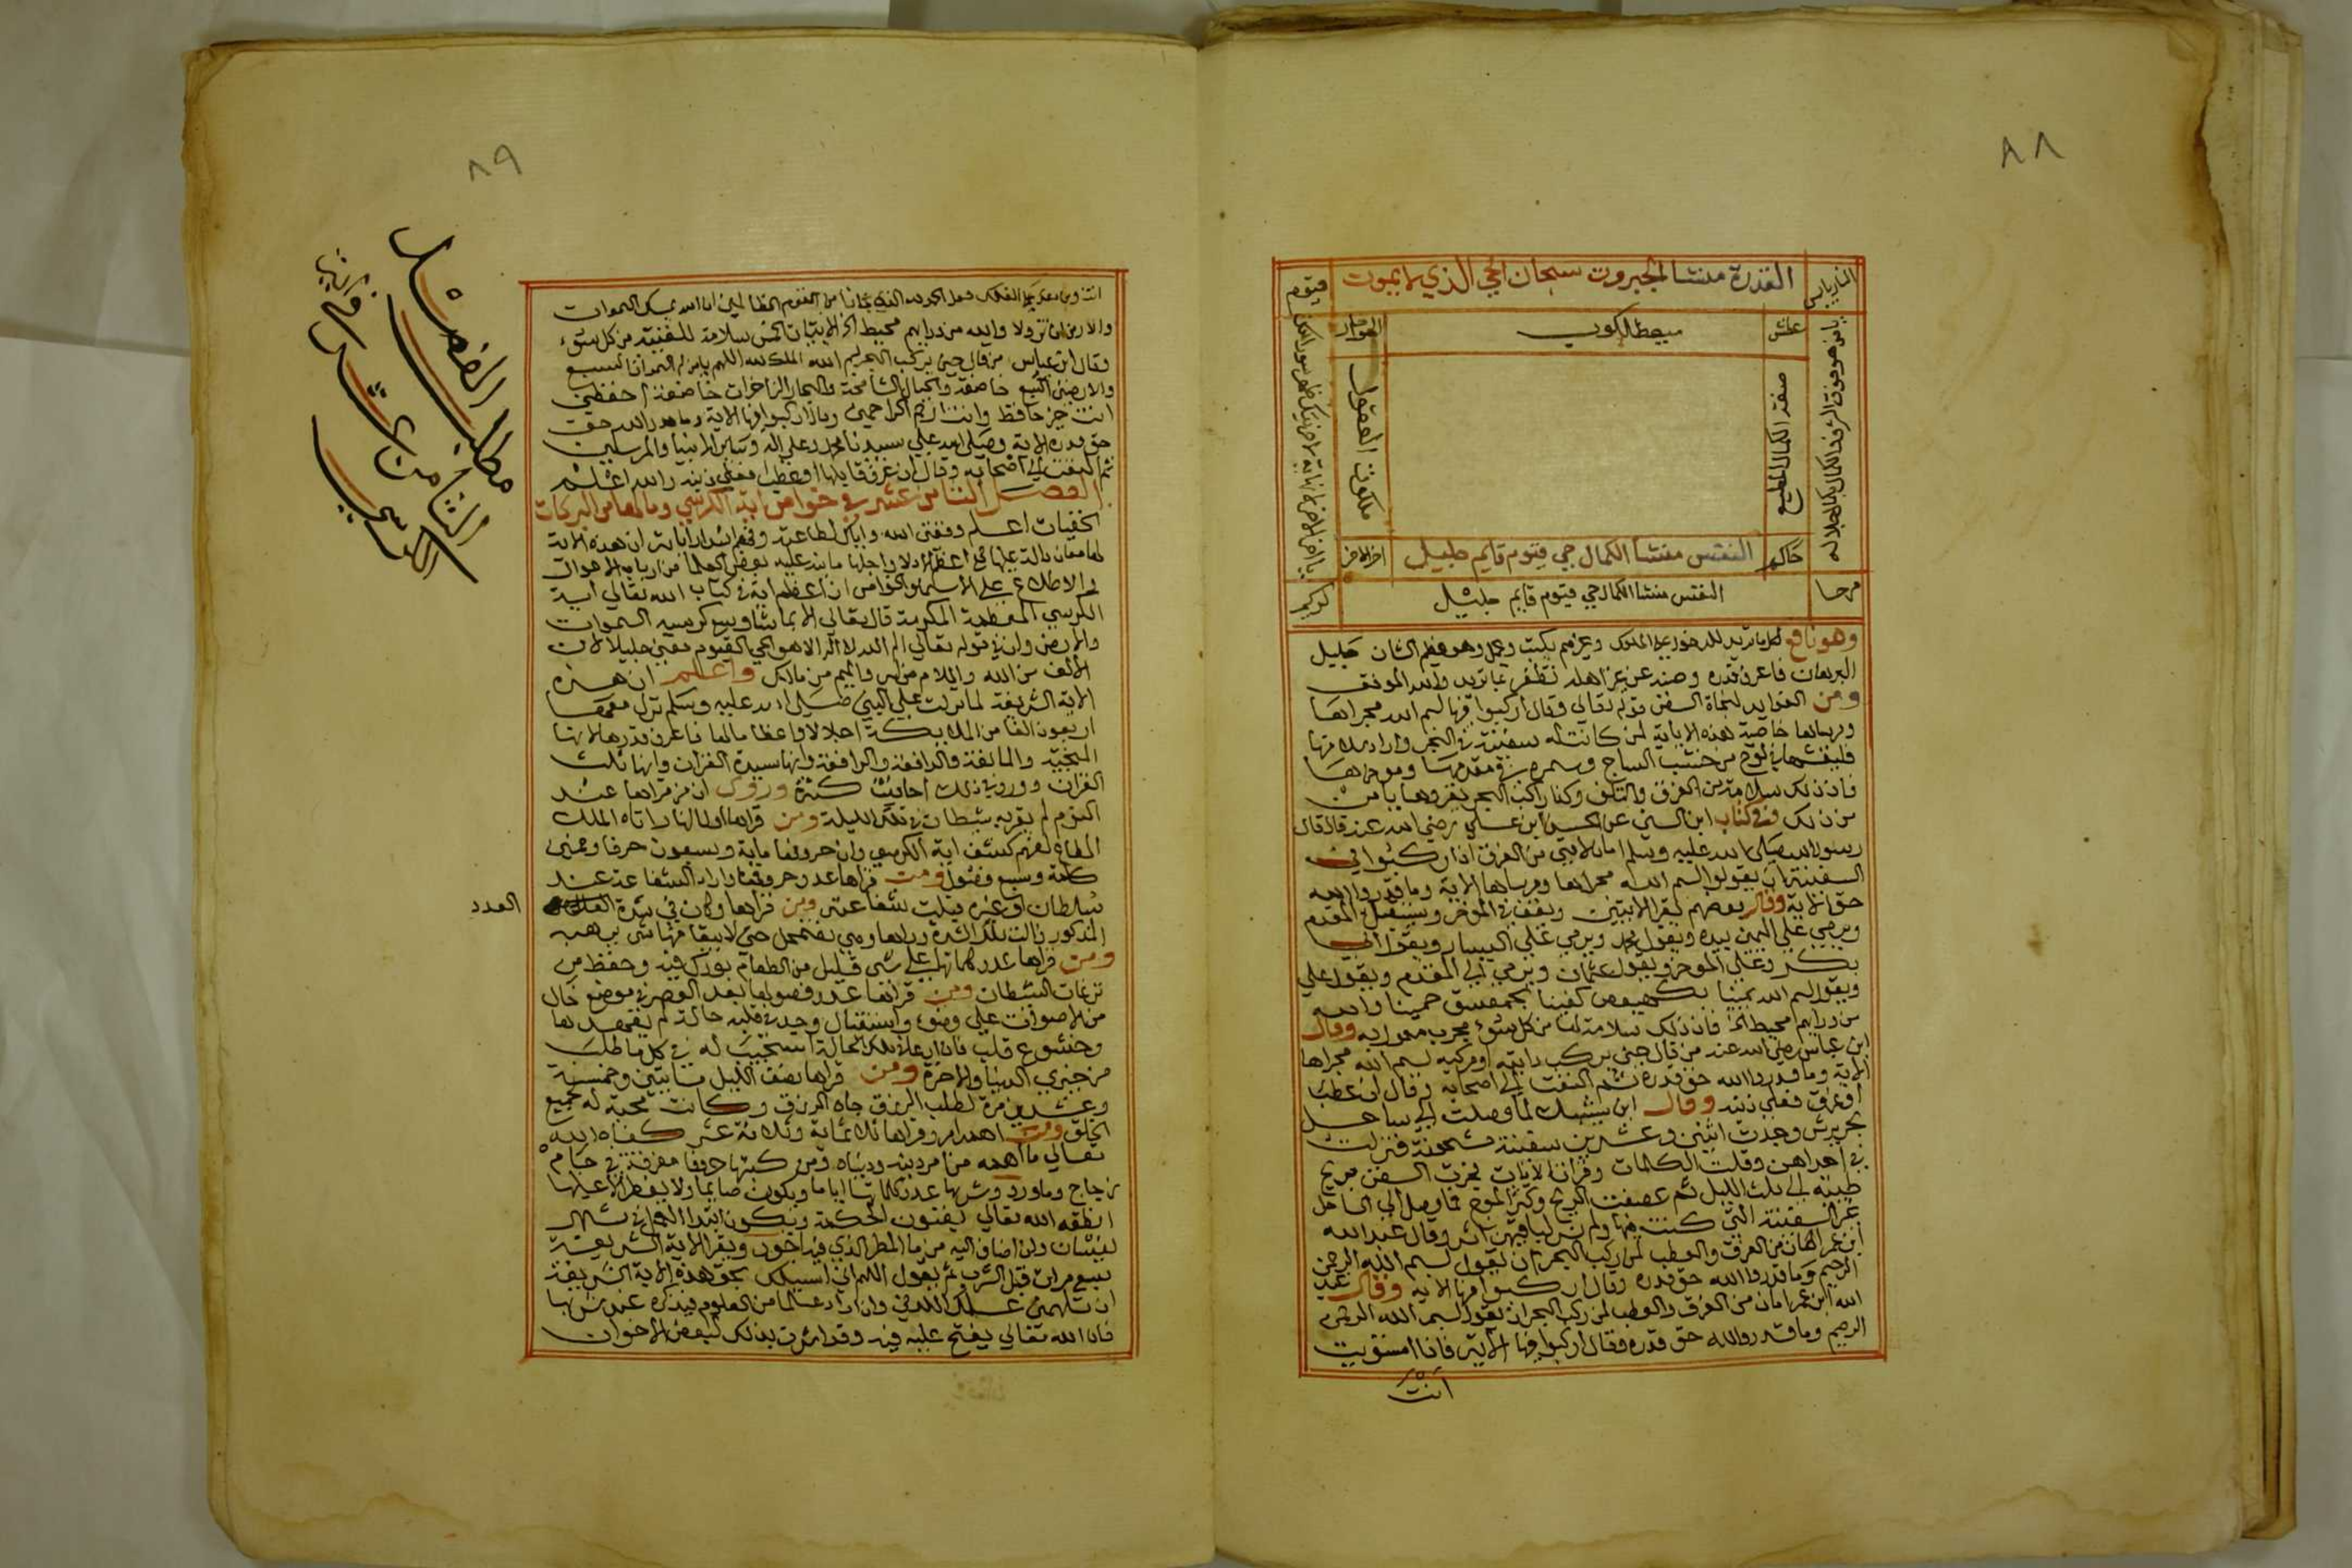 ٨٨
القدرة منشا الجبروت سبحان الحي الذي لا يموت
قيوم
محيط الكون
صفة الكمال المطيع
ملكوت العقول
النفس منشأ الكمال حي قيوم قايم جليل
النفس منشا الكمال حي قيوم قايم جليل
مرحا
كريم
وهو نافع لما تريد للدخول على الملوك وغيرهم يكتب ويحمل وهو عظيم الشان جليل
البرهان فاعرف قدره وصنه عن غير اهله تظفر بما تريد والله الموفق
ومن الفوايد لنجاة السفن قوله تعالى وقال اركبوا فيها بسم الله مجراها
ومرساها خاصية هذه الاية لمن كانت له سفينة في البحر واراد سلامتها
فلينقشها في لوح من خشب الساج ويسمره في مقدمها وموخرها
فان ذلك سلامة من الغرق والتلف وكذا راكب البحر يقروها يامن
من ذلك وفي كتاب ابن السني عن الحسين ابن علي رضي الله عنه قال قال
رسول الله صلى الله عليه وسلم امان لامتي من الغرق اذا ركبوا في
السفينة ان يقولوا بسم الله مجراها ومرساها الاية وما قدروا الله
حق الاية وقال بعضهم يقرا الايتين ويقف في الموخر ويستقبل المقدم
ويرمي على اليمين بيده ويقول عمر ويرمي على اليسار ويقول ابي
بكر وعلى الموخر ويقول عثمان ويرمي الى المقدم ويقول علي
ويقول بسم الله بيننا بكهيعص كفينا بحمعسق حمينا والله
من ورايهم محيط الخ فان ذلك سلامة لها من كل سوء مجرب معول به وقال
ابن عباس رضي الله عنه من قال حين يركب دابته او مركبه بسم الله مجراها
الاية وما قدروا الله حق قدره ثم التفت الى اصحابه وقال ان عطب
او غرق فعلي ديته وقال ابن لما وصلت الى ساحل
وجدت اثنين وعشرين سفينة مشحونة فنزلت
في احداهن وقلت الكلمات وقرات الايات فجرت السفن بريح
طيبة الى ثلث الليل ثم عصفت الريح وكثر الموج فما وصل الى الساحل
غير السفينة التي كنت فيها ولم نر لباقيهن اثر وقال عبد الله
ابن عمر امان من الغرق والعطب لمن ركب البحر ان يقول بسم الله الرحمن
الرحيم وما قدروا الله حق قدره وقال اركبوا فيها الاية وقال عبد
الله ابن عمر امان من الغرق والعطب لمن ركب البحر ان يقول بسم الله الرحمن
الرحيم وما قدروا الله حق قدره وقال اركبوا فيها الاية فاذا استويت
انت
٨٩
انت ومن معك على الفلك فقل الحمد لله الذي نجانا من القوم الظالمين ان الله يمسك السموات
والارض ان تزولا والله من ورايهم محيط الخ الايتان الخمس سلامة للسفينة من كل سوء
وقال ابن عباس من قال حين يركب البحر بسم الله الملك لله اللهم يامن له السموات السبع
والارضين السبع خاضعة والجبال الشامخة والبحار الزاخرات خاضعة احفظني
انت خير حافظ وانت ارحم الراحمين وقال اركبوا فيها الاية وما قدروا الله حق
حق قدره الاية وصلى الله على سيدنا محمد وعلى اله وساير الانبيا والمرسلين
ثم التفت الى اصحابه وقال ان غرق قايلها او عطب فعلي ديته والله اعلم
الفصل الثامن عشر في خواص اية الكرسي وما لها من البركات
الخفيات اعلم وفقني الله واياك لطاعته وفهم اسرار اياته ان هذه الاية
والاطلاع على الاسما والخواص ان اعظم اية في كتاب الله تعالى اية
الكرسي المعظمة المكرمة قال تعالى الا بما شا وسع كرسيه السموات
والارض وان في قوله تعالى الم الله لا اله الا هو الحي القيوم معنى جليلا لان
الالف من الله واللام من والميم من مالك واعلم ان هذه
الاية الشريفة لما نزلت على النبي صلى الله عليه وسلم نزل معها
اربعون الفا من الملايكة اجلالا واعظاما لها فاعرف قدرها لانها
المنجية والمانعة والدافعة والرافعة وانها سيدة القران وانها ثلث
القران وورد في ذلك احاديث كثيرة وروى ان من قراها عند
النوم لم يقربه شيطان في تلك الليلة ومن
كلمة وسبع فصول ومن قراها عدد حروفها واراد الشفاعة عند
سلطان او غيره قبلت شفاعته ومن قراها وكان في شدة
العدد
المذكور زالت تلك الشدة
ومن قراها عدد كلماتها على شي قليل من الطعام بورك فيه وحفظ من
نزغات الشيطان ومن قراها عدد فصولها بعد العصر في موضع خال
من الاصوات على وضوء واستقبال وجد في قلبه حالة لم يعهدها
وخشوع قلب فان دعا في تلك الحالة استجيب له في كل ما طلب
من خيري الدنيا والاخرة ومن قراها نصف الليل مايتين وخمسة
وعشرين مرة لطلب الرزق جاه الرزق وكانت محبة له جميع
الخلق ومن اهمه امر وقراها ثلاثماية وثلاثة عشر كفاه الله
تعالى ما اهمه من امر دينه ودنياه ومن كتبها حروفا مفرقة في جام
زجاج وماورد وشربها عدد كلماتها اياما ويكون صايما ولا يفطر الا عليها
انطقه الله تعالى بفنون الحكمة ويكون ابتدا العمل في شهر
نيسان وان اضاف اليه من ما المطر الذي فيه اجود ويقرا الاية الشريفة
سبع مرات قبل الشرب ثم يقول اللهم اني اسيلك بحق هذه الاية الشريفة
ان تلهمني علمك اللدني وان اراد علما من العلوم فيذكره عند شربها
فان الله تعالى يفتح عليه فيه وقد امرت بذلك لبعض الاخوان
مطلب الفصل
الثامن عشر في
الكرسي